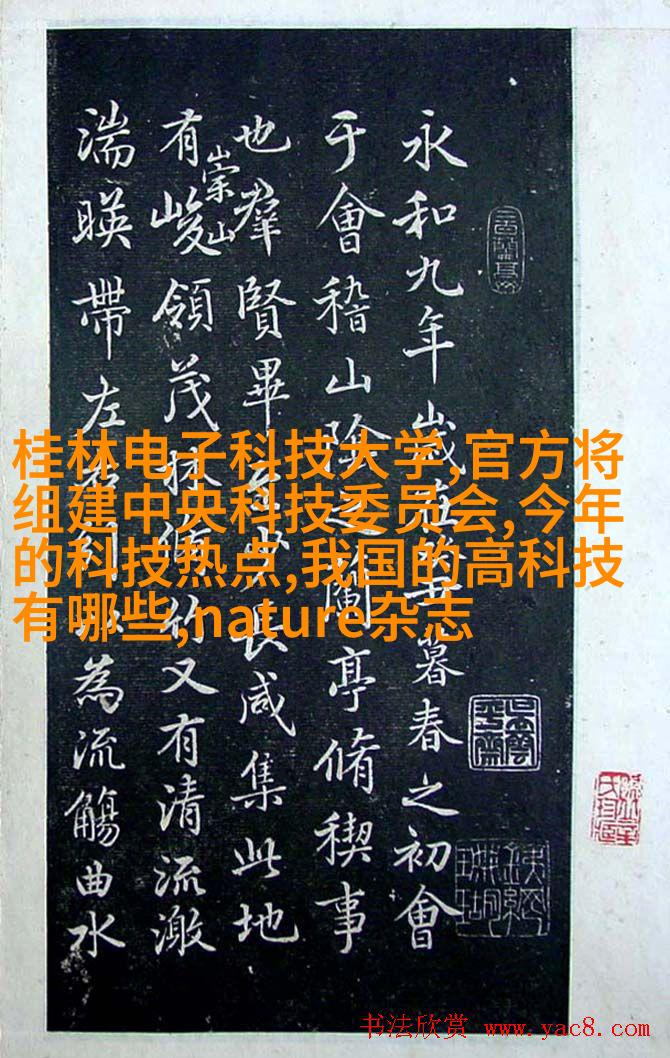 永和九年歲在癸丑暮春之初會
于會稽山陰之蘭亭脩稧事
也羣賢畢至少長咸集此地
有崇山峻領茂林脩竹又有清流激
湍暎帶左右引以為流觴曲水
桂林电子科技大学,官方将
组建中央科技委员会,今年
的科技热点,我国的高科技
有哪些,nature杂志
书法欣赏 www.yac8.com